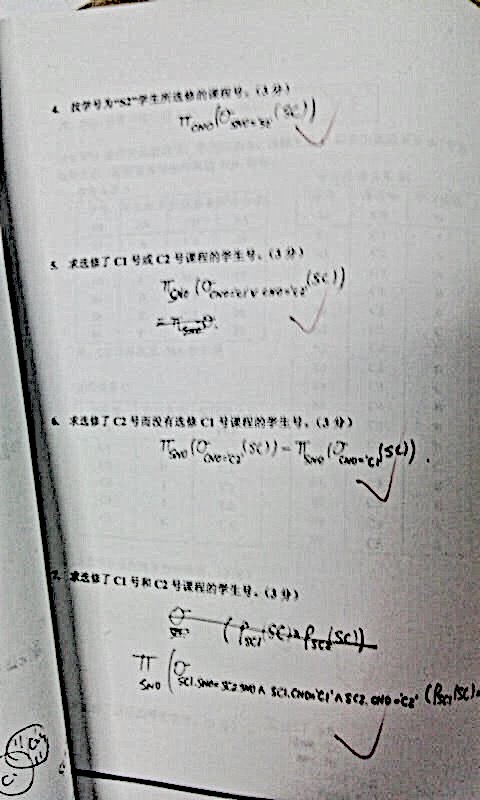 4. 找学号为“S2”学生所选修的课程号。(3 分)
π_CNO(σ_SNO='S2'(SC))
5. 求选修了 C1 号或 C2 号课程的学生号。(3 分)
π_SNO(σ_CNO='C1'∨CNO='C2'(SC))
= π_SNO σ.
6. 求选修了 C2 号而没有选修 C1 号课程的学生号。(3 分)
π_SNO(σ_CNO='C2'(SC)) - π_SNO(σ_CNO='C1'(SC)).
7. 求选修了 C1 号和 C2 号课程的学生号。(3 分)
σ (ρ_SC1(SC)×ρ_SC2(SC))
π_SNO(σ_SC1.SNO=SC2.SNO∧SC1.CNO='C1'∧SC2.CNO='C2'(ρ_SC1(SC)